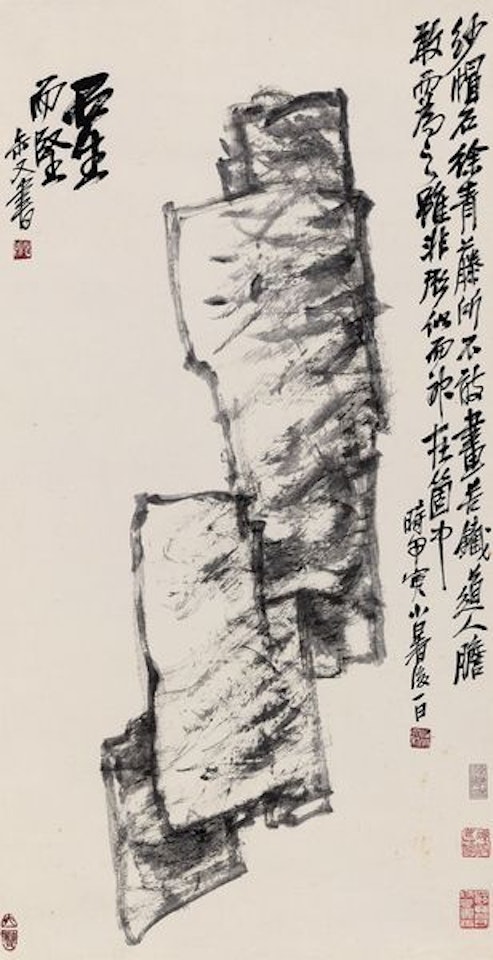 紗帽石徐青藤所不敢畫苦鐵道人膽
敢而為之雖非形似而神在箇中
時甲寅小暑後一日
而堅
缶又書